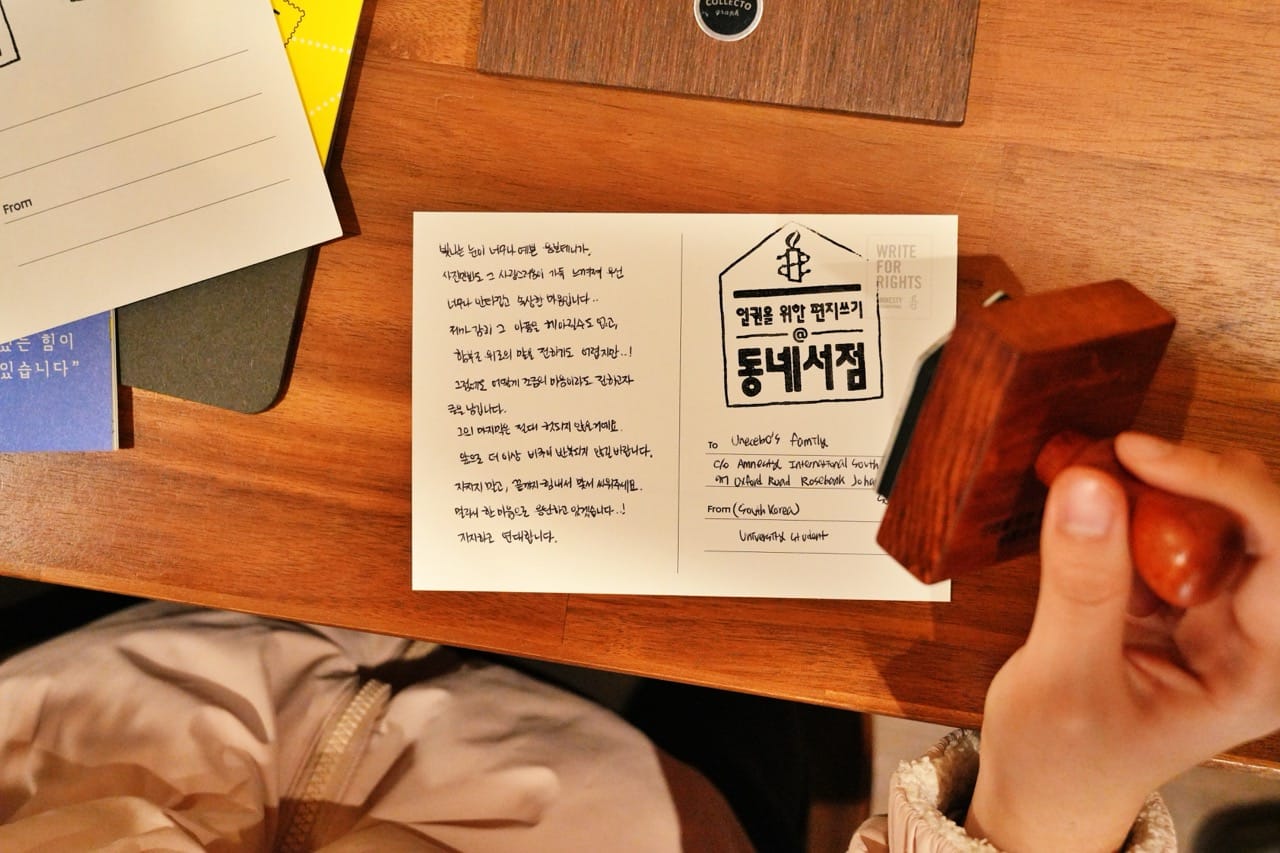 COLLECTO
graph
From
있는 힘이
있습니다”
빛나는 눈이 너무나 예쁜 음보데니가,
사진만봐도 그 사랑스러움이 가득 느껴져 우선
너무나 안타깝고 속상한 마음입니다..
제가 감히 그 아픔을 헤아릴수도 없고,
함부로 위로의 말을 전하기도 어렵지만..!
그럼에도 어떻게 조금의 마음이라도 전하고자
글을 남깁니다.
그의 마지막은 절대 헛되지 않을거예요.
앞으로 더 이상 비극이 반복되지 않길 바랍니다.
지치지 말고, 끝까지 힘내서 맞서 싸워주세요.
멀리서 한 마음으로 응원하고 있겠습니다..!
지지하고 연대합니다.
WRITE
FOR
RIGHTS
AMNESTY
인권을 위한 편지쓰기
@
동네서점
To Unecebo's family
c/o Amnesty International South
97 Oxford Road Rosebank Joha
From (South Korea)
University student